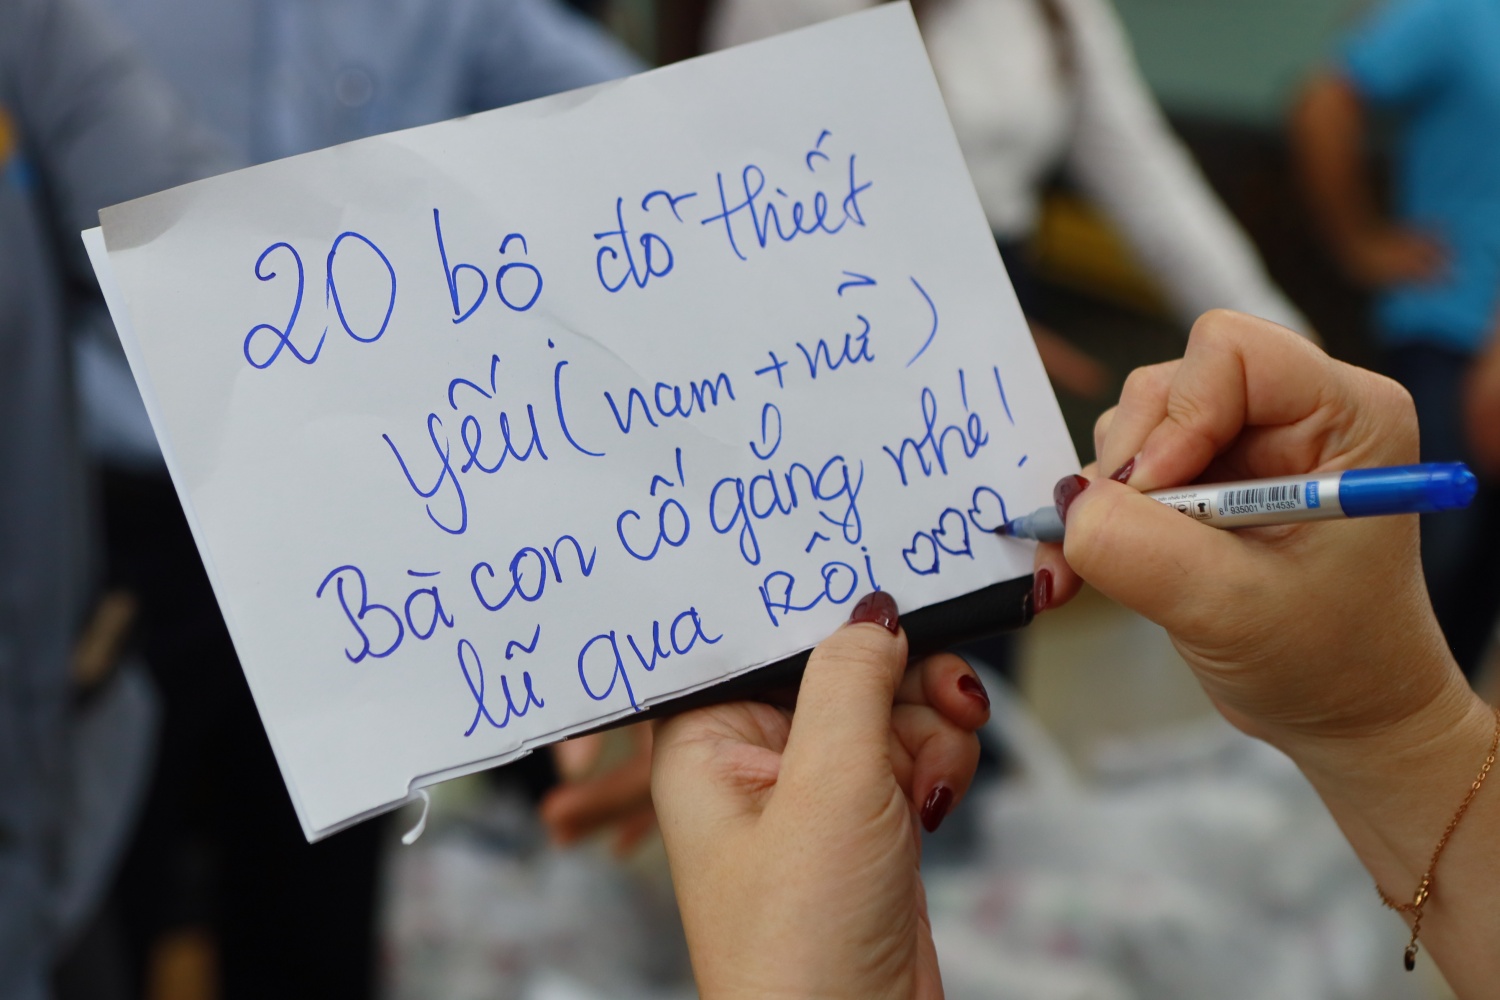 20 bộ đồ thiết
yếu (nam + nữ)
Bà con cố gắng nhé!
lũ qua rồi ♡♡♡
8 935001 814535